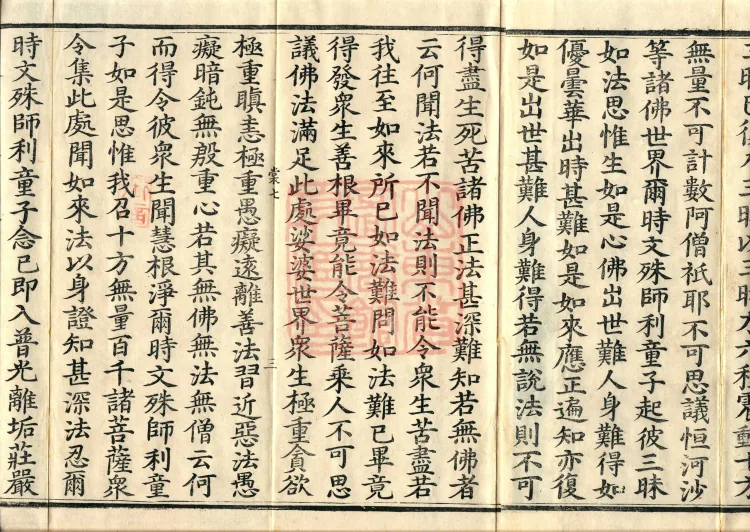 六種震動十六
無量不可計數阿僧祇耶不可思議恒河沙
等諸佛世界爾時文殊師利童子起彼三昧
如法思惟生如是心佛出世難人身難得如
優曇華出時甚難如是如來應正遍知亦復
如是出世甚難人身難得若無說法則不可
得盡生死苦諸佛正法甚深難知若無佛者
云何聞法若不聞法則不能令衆生苦盡若
我往至如來所已如法難問如法難已畢竟
得發衆生善根畢竟能令菩薩乘人不可思
議佛法滿足此處娑婆世界衆生極重貪欲
棠七 三
極重瞋恚極重愚癡遠離善法習近惡法愚
癡暗鈍無殷重心若其無佛無法無僧云何
而得令彼衆生聞慧根淨爾時文殊師利童
子如是思惟我召十方無量百千諸菩薩衆
令集此處聞如來法以身證知甚深法忍爾
時文殊師利童子念已即入普光離垢莊嚴